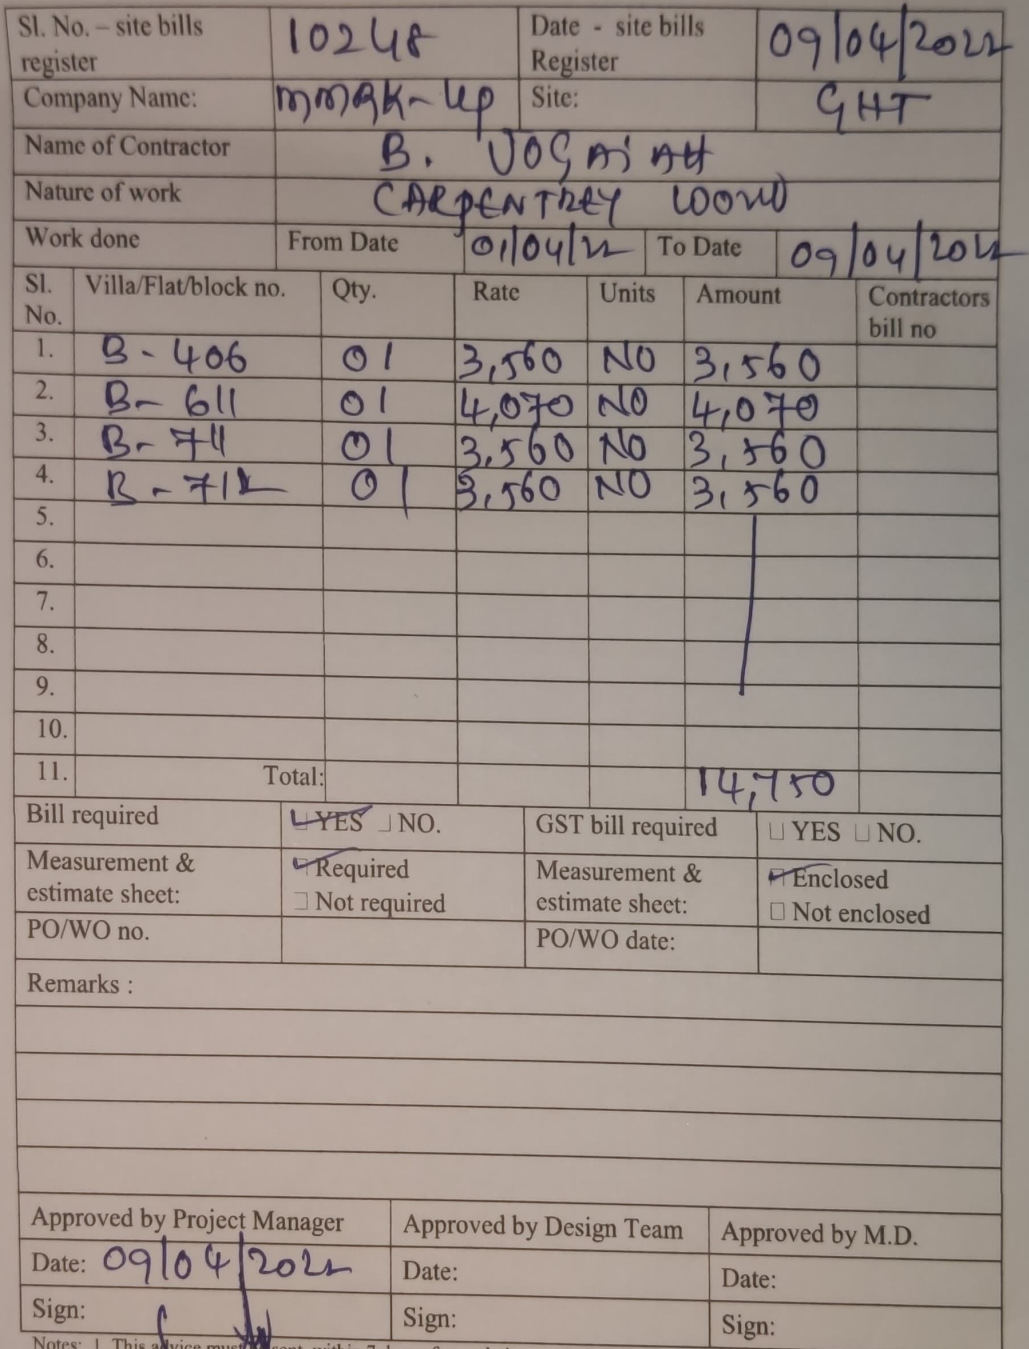 Sl. No. – site bills register 10248 Date - site bills Register 09/04/2022
Company Name: Site: GHT
Name of Contractor B.
Nature of work CARPENTREY
Work done From Date 01/04/22 To Date 09/04/2022
Sl. No. Villa/Flat/block no. Qty. Rate Units Amount Contractors bill no
1. B - 406 01 3,560 NO 3,560
2. B- 611 01 4,070 NO 4,070
3. B- 711 01 3,560 NO 3,560
4. B - 712 01 3,560 NO 3,560
5.
6.
7.
8.
9.
10.
11. Total: 14,750
Bill required YES NO. GST bill required YES NO.
Measurement & estimate sheet: Required Not required Measurement & estimate sheet: Enclosed Not enclosed
PO/WO no. PO/WO date:
Remarks :
Approved by Project Manager Approved by Design Team Approved by M.D.
Date: 09/04/2022 Date: Date:
Sign: Sign: Sign:
Notes: 1. This advice must